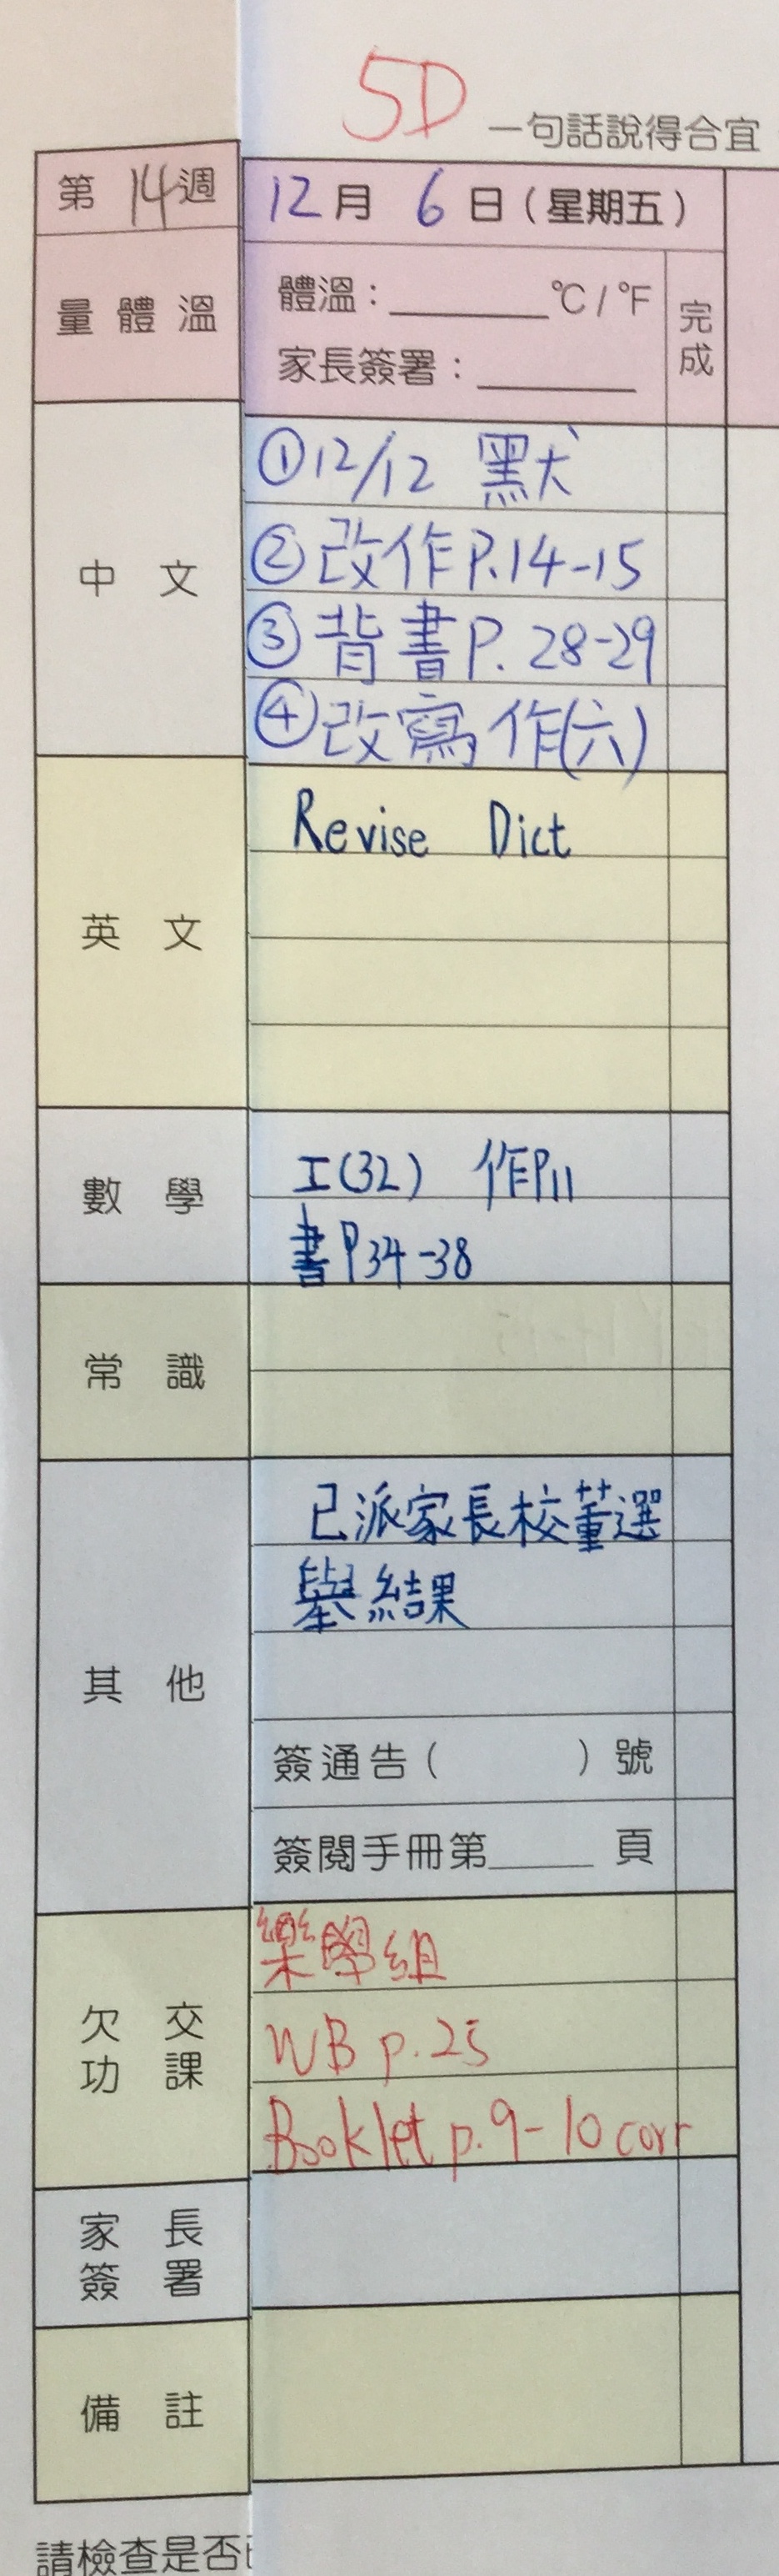 5D
一句話說得合宜
第 14 週
12 月 6 日（星期五）
量體溫
體溫：______°C / °F
家長簽署：______
完成
中文
①12/12 默
②改作P.14-15
③背書P.28-29
④改寫作(六)
英文
Revise Dict
數學
工(32) 作P11
書P34-38
常識
其他
已派家長校董選
舉結果
簽通告（ ）號
簽閱手冊第____頁
欠交功課
樂學組
WB p.25
Booklet p.9-10 corr
家長簽署
備註
請檢查是否已